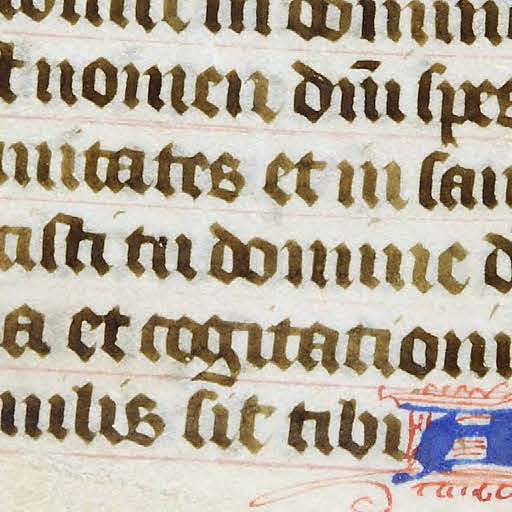 in domin
t nomen dn̄i spes
nitates et in san
cisti tu domine d
a et cogitationi
milis sit tibi A